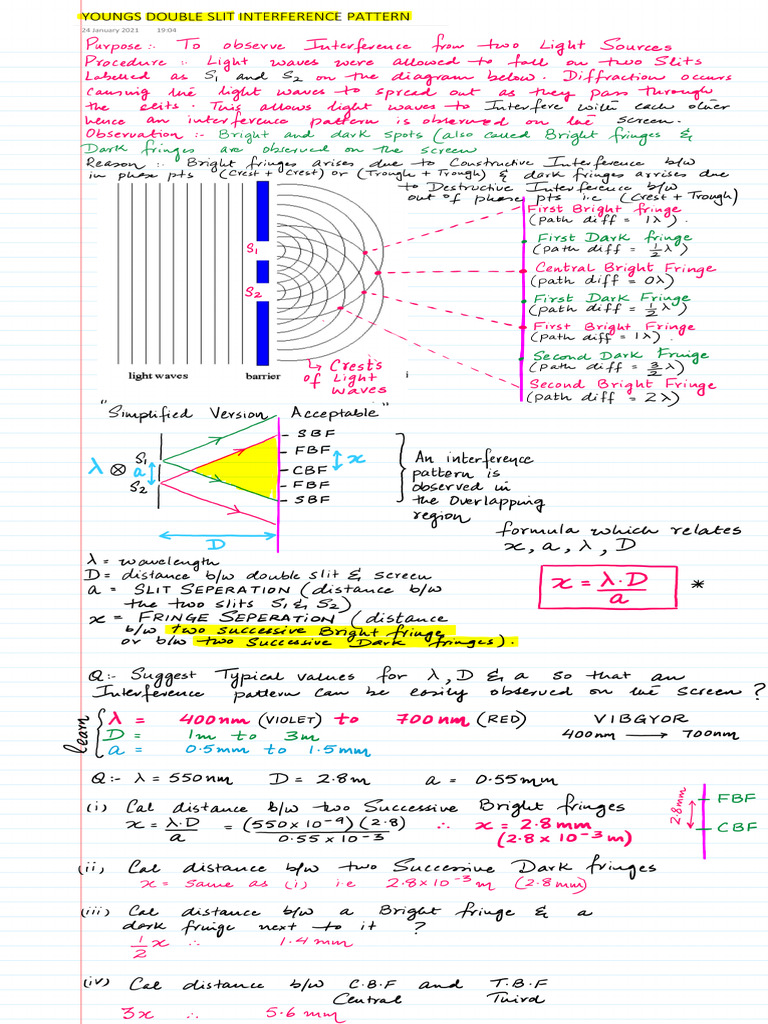 YOUNGS DOUBLE SLIT INTERFERENCE PATTERN
24 January 2021 19:04
Purpose :- To observe Interference from two Light Sources
Procedure :- Light waves were allowed to fall on two Slits
Labelled as S1 and S2 on the diagram below. Diffraction occurs
causing the light waves to spread out as they pass through
the slits. This allows light waves to Interfere with each other
hence an interference pattern is observed on the screen.
Observation :- Bright and dark spots (also called Bright fringes &
Dark fringes are observed on the screen
Reason :- Bright fringes arises due to Constructive Interference b/w
in phase pts (Crest + Crest) or (Trough + Trough) & dark fringes arrises due
to Destructive Interference b/w
out of phase pts i.e (Crest + Trough)
First Bright fringe
(path diff = 1λ).
First Dark fringe
(path diff = 1/2 λ)
Central Bright Fringe
(path diff = 0λ)
First Dark Fringe
(path diff = 1/2 λ)
First Bright Fringe
(path diff = 1λ).
Second Dark Fringe
(path diff = 3/2 λ)
Second Bright Fringe
(path diff = 2λ)
S1
S2
light waves barrier i
↳ Crests
of Light
waves
"Simplified Version Acceptable"
SBF
FBF
CBF
FBF
SBF
λ ⊗ a
S1
S2
x
D
An interference
pattern is
observed in
the Overlapping
region
formula which relates
x, a, λ, D
x = λ.D/a *
λ = wavelength
D = distance b/w double slit & screen
a = SLIT SEPERATION (distance b/w
the two slits S1 & S2)
x = FRINGE SEPERATION (distance
b/w two successive Bright fringe
or b/w two Successive Dark fringes).
Q:- Suggest Typical values for λ, D & a so that an
Interference pattern can be easily observed on the screen ?
learn
λ = 400nm (VIOLET) to 700nm (RED)
D = 1m to 3m
a = 0.5mm to 1.5mm
VIBGYOR
400nm → 700nm
Q:- λ = 550nm D = 2.8m a = 0.55mm
(i) Cal distance b/w two Successive Bright fringes
x = λ.D/a = (550 x 10^-9)(2.8)/0.55 x 10^-3 ∴ x = 2.8mm
(2.8 x 10^-3 m)
2.8mm
FBF
CBF
(ii) Cal distance b/w two Successive Dark fringes
x = same as (i) i.e 2.8 x 10^-3 m (2.8mm)
(iii) Cal distance b/w a Bright fringe & a
dark fringe next to it ?
1/2 x ∴ 1.4mm
(iv) Cal distance b/w C.B.F and T.B.F
Central Third
3x ∴ 5.6mm